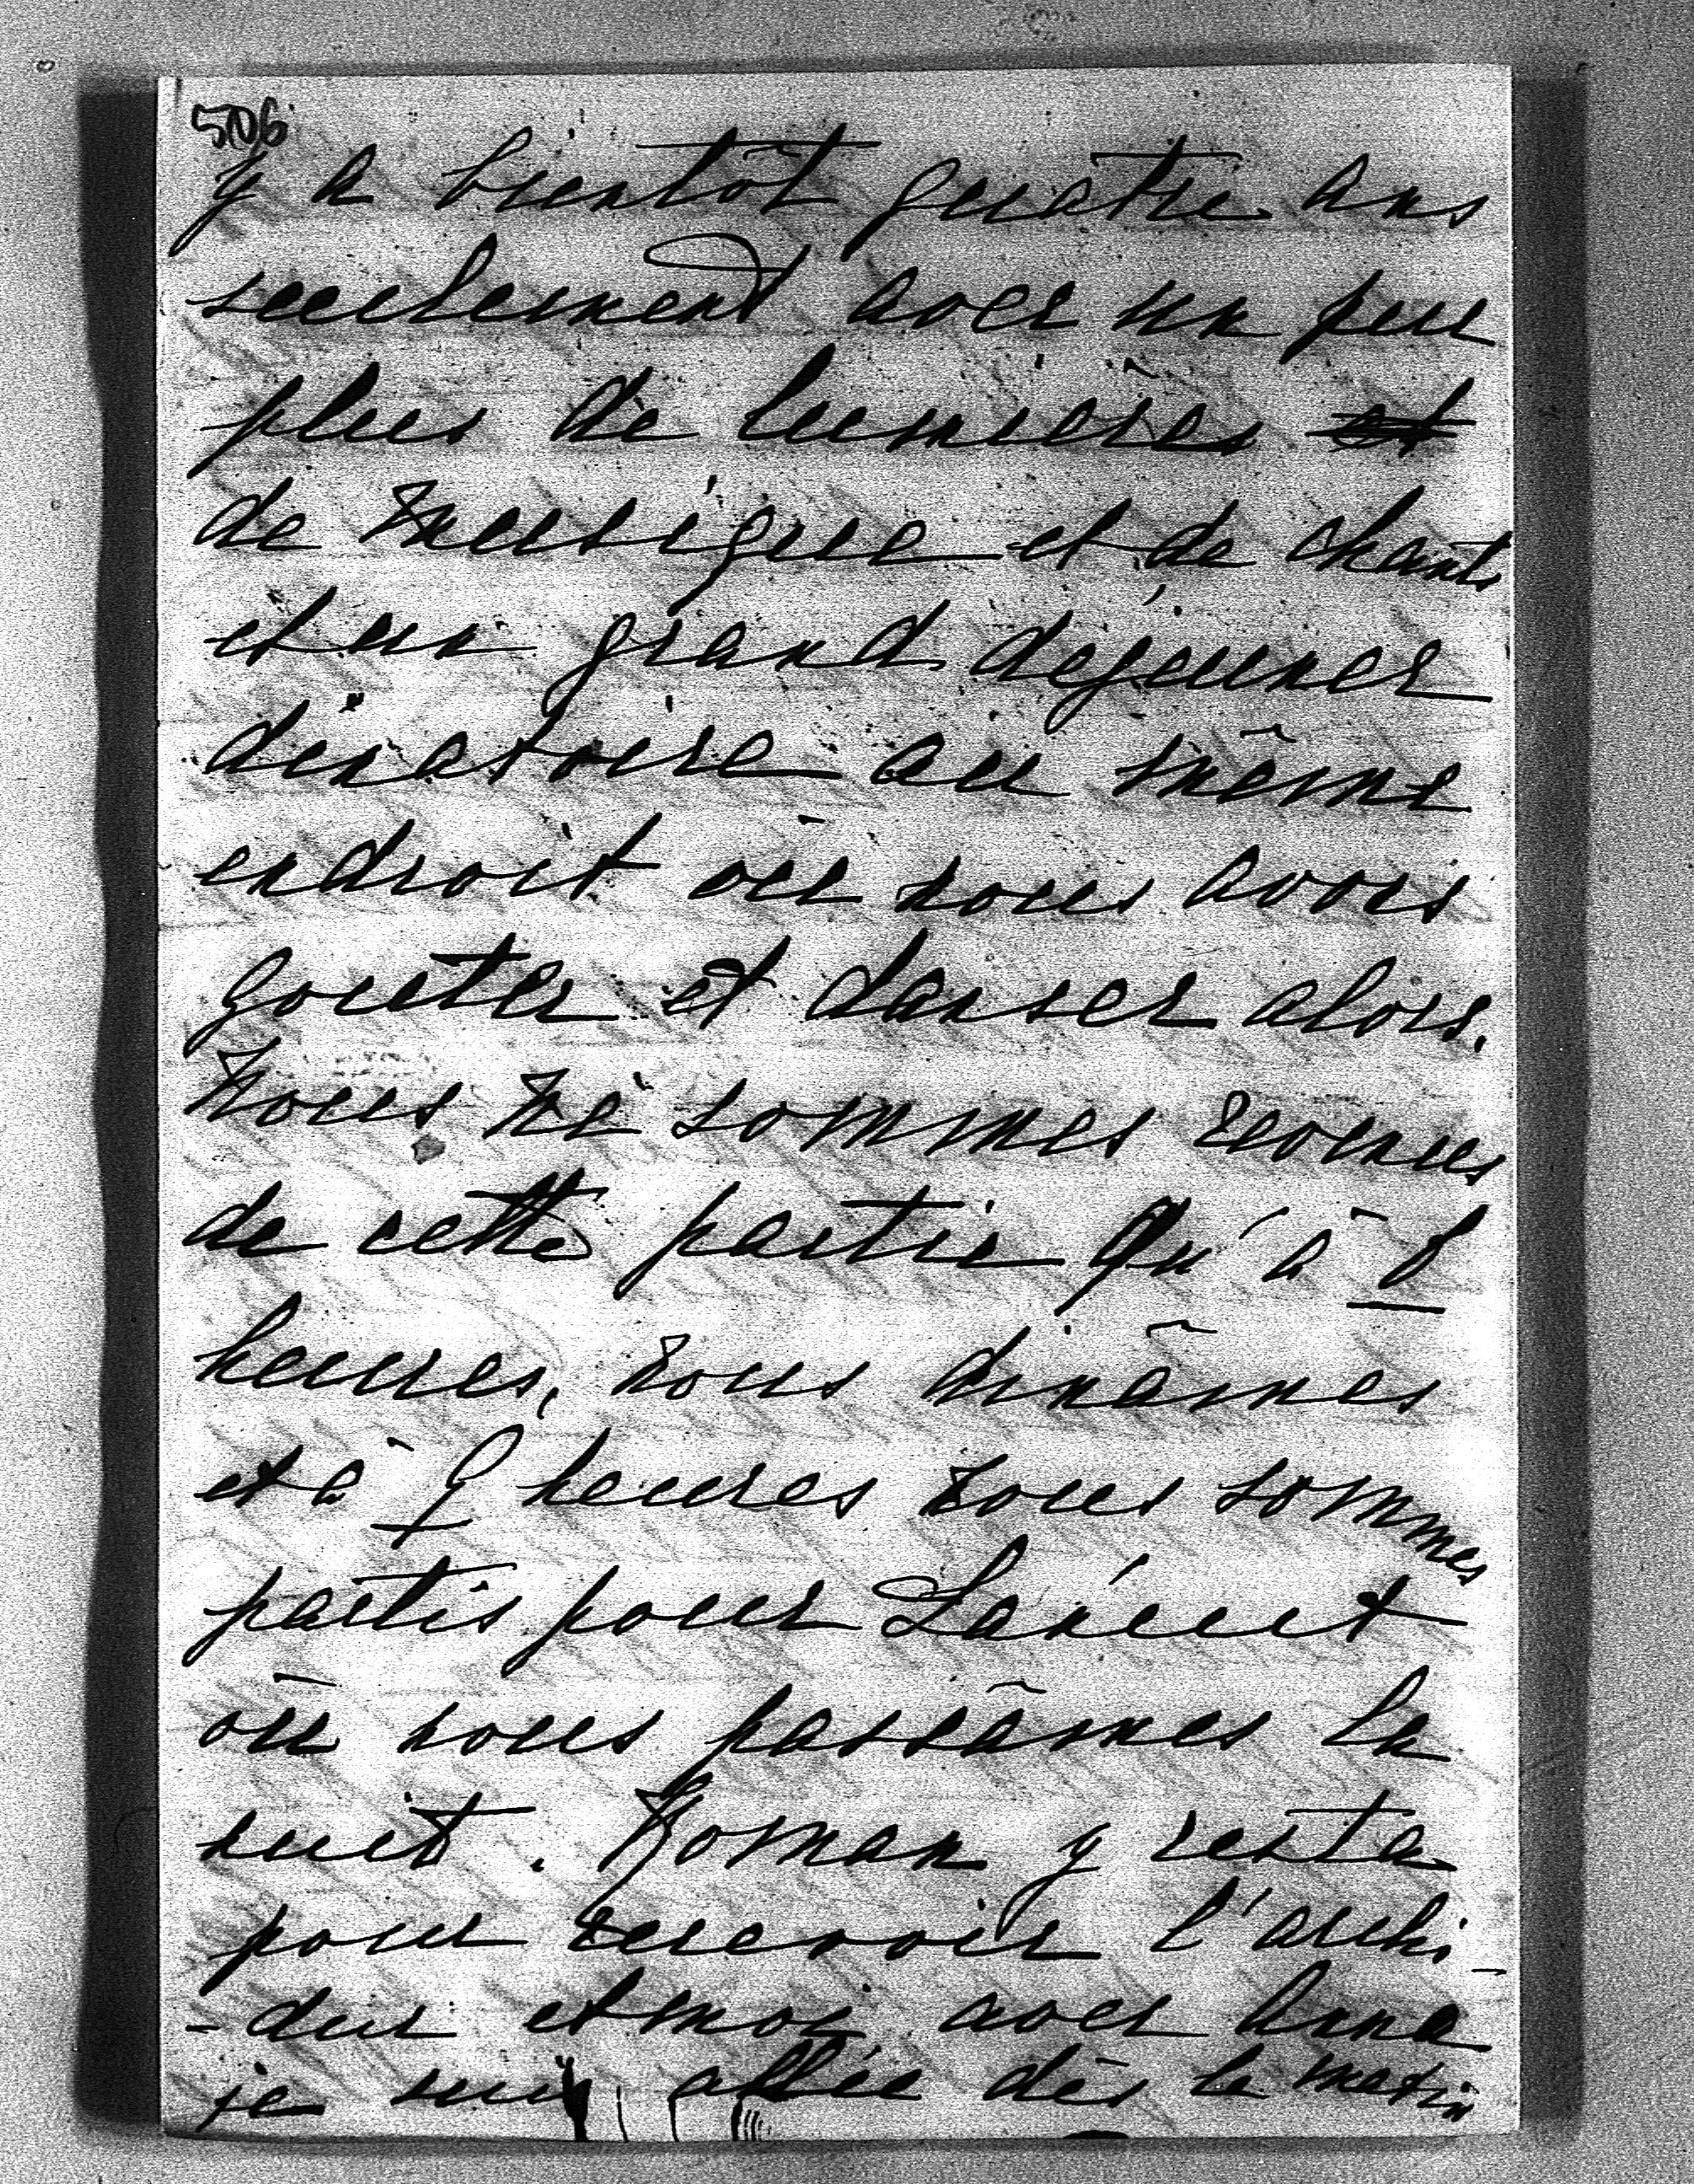 506
y a bientôt quatre ans
seulement avec un peu
plus de lumières et
de musique et de chants
et un grand déjeuner
dinatoire au même
endroit où nous avons
gouter et danser alors.
Nous ne sommes revenus
de cette partie qu'à 8
heures, nous dinâmes
et à 9 heures nous sommes
partis pour Lańcut
où nous passâmes la
nuit. Roman y resta
pour recevoir l'archi-
-duc et moi avec Anna
je suis allée dès le matin